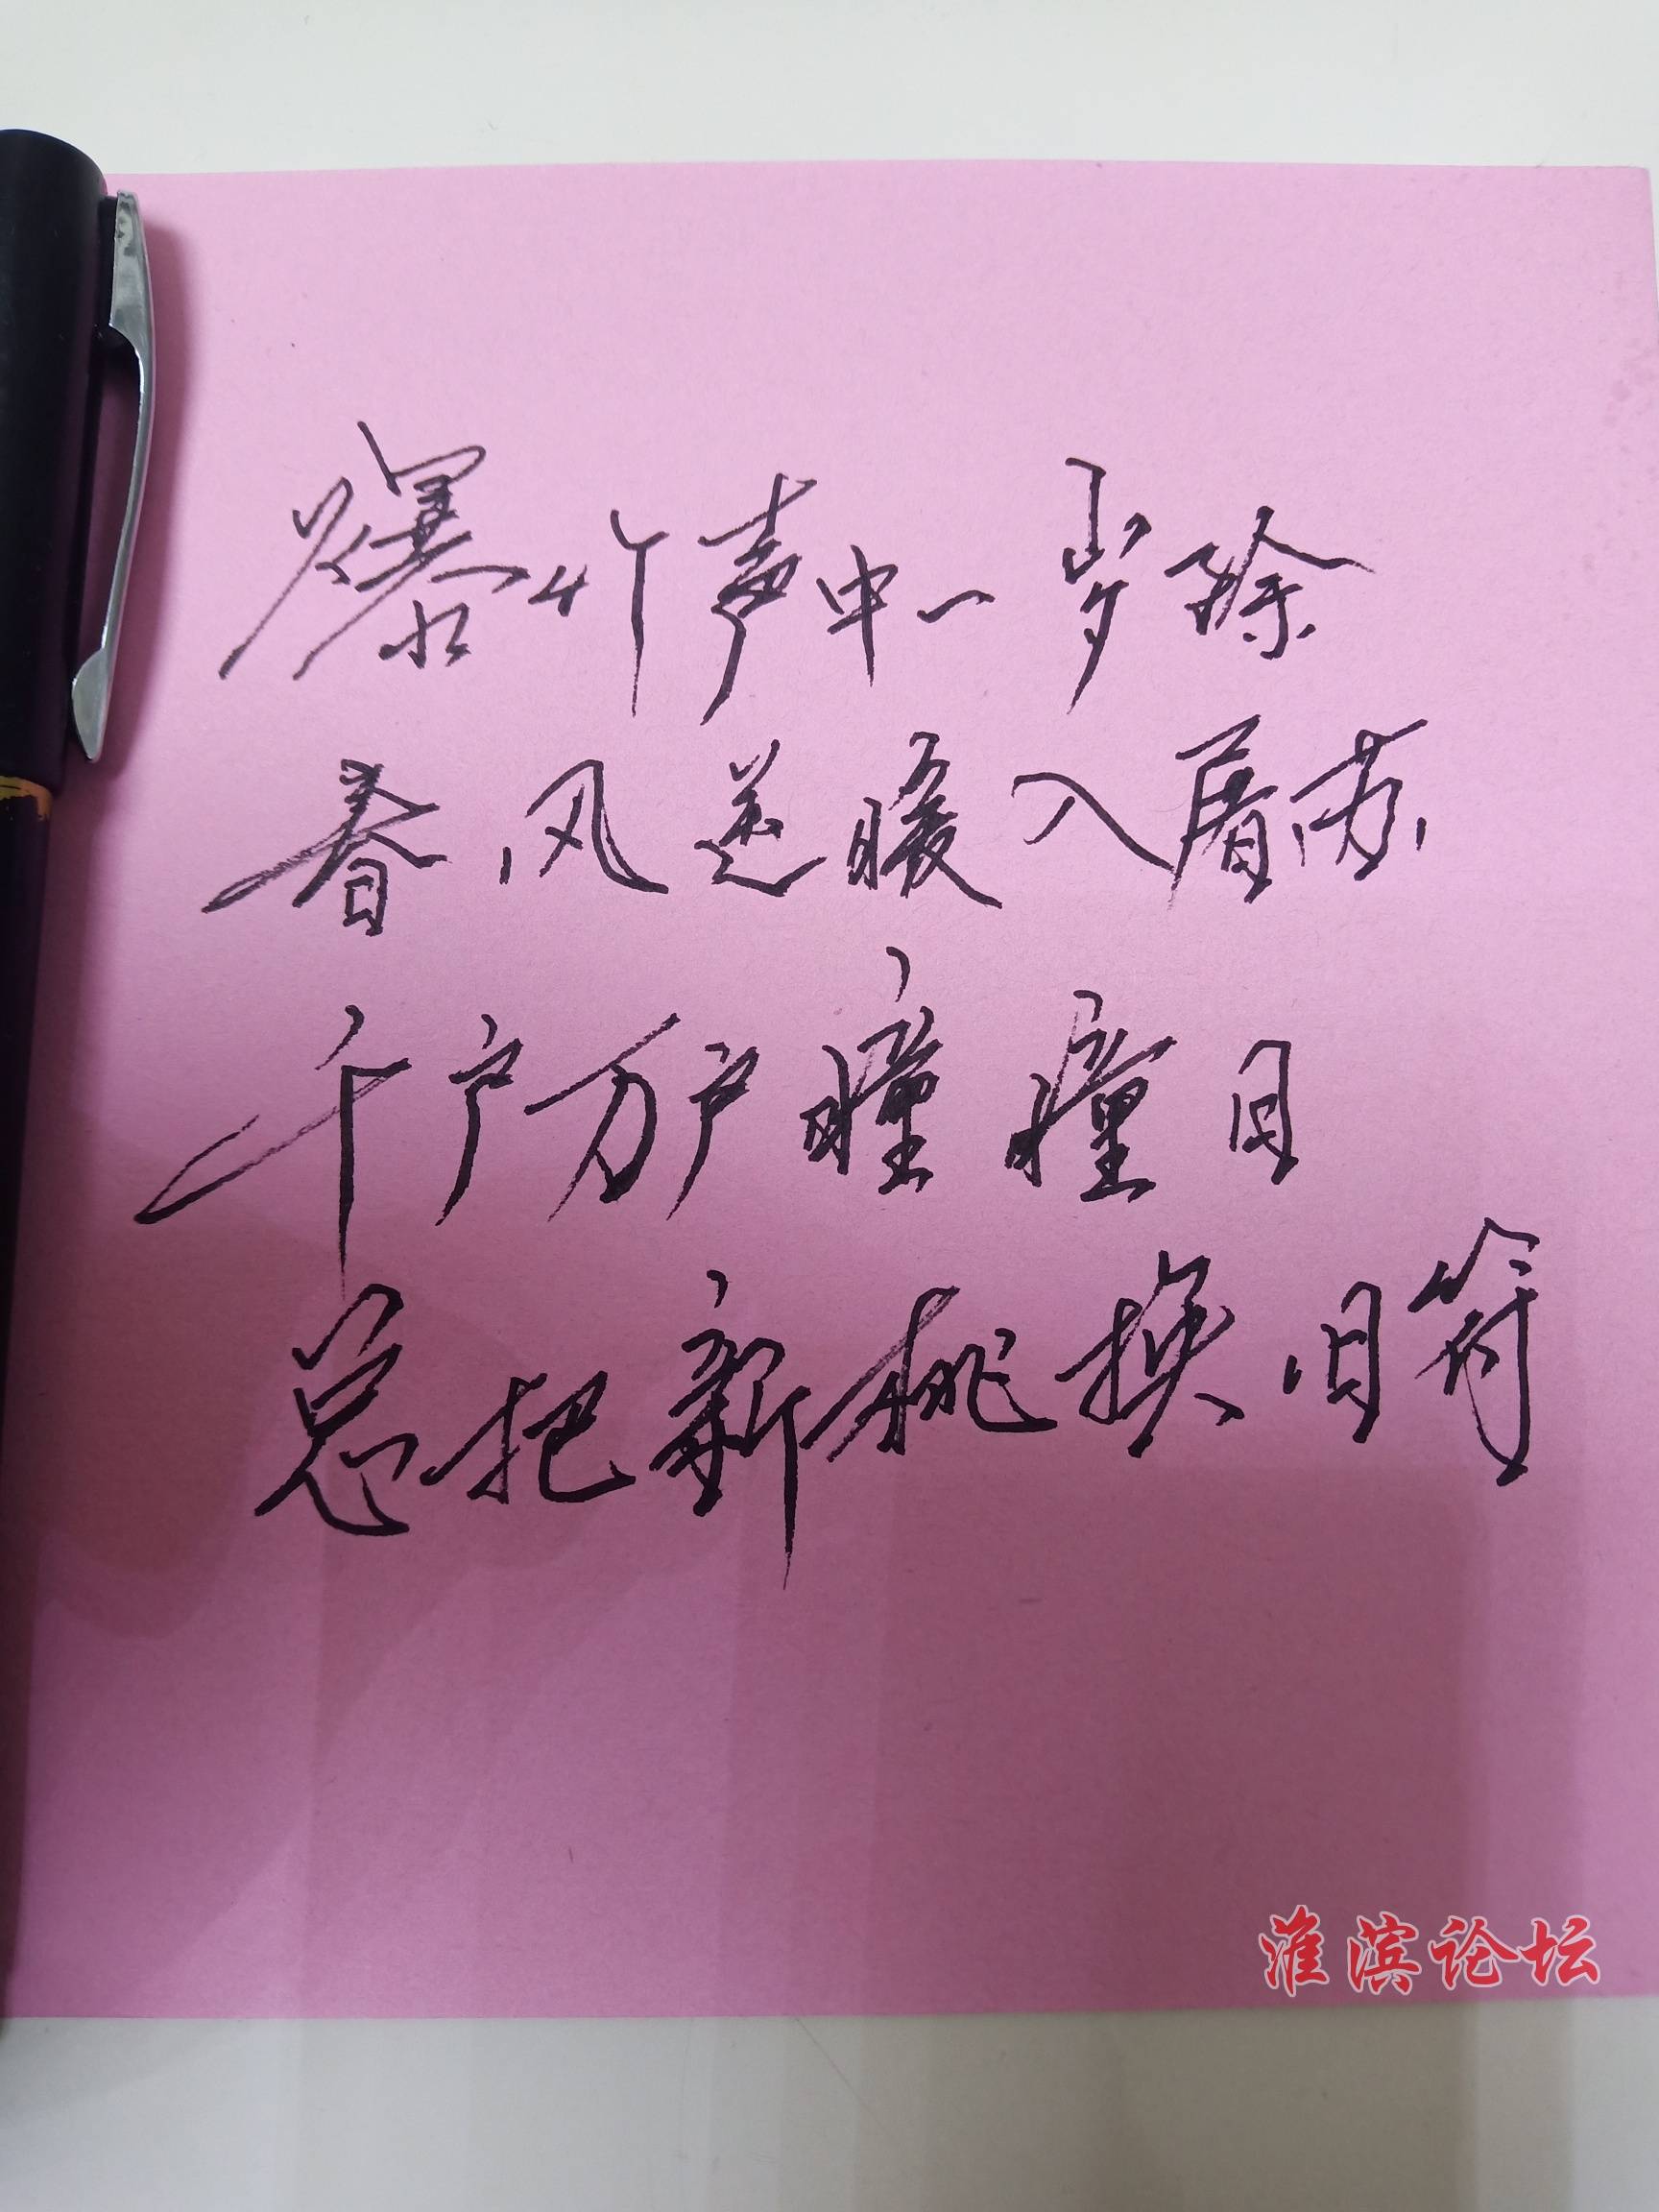 爆竹声中一岁除
春风送暖入屠苏
千户万户瞳瞳日
总把新桃换旧符
淮滨论坛